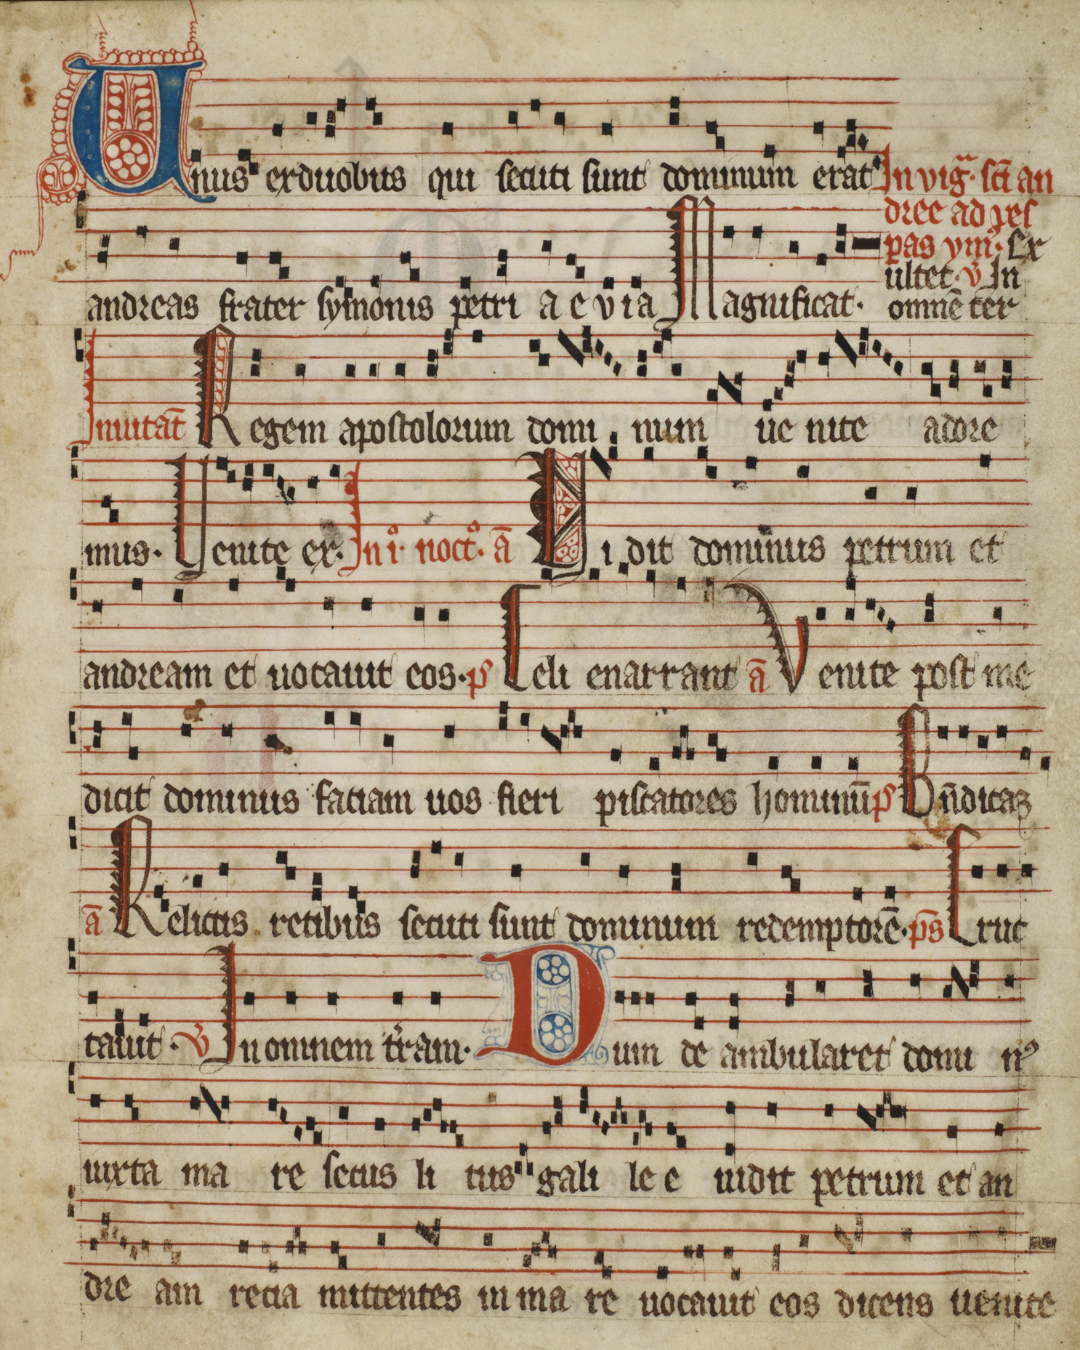 Unus ex duobus qui secuti sunt dominum erat
In vig̃. sc̃i an
dree ad ves
pas ym̃. Ex
ultet. v̄ In
omnē ter
andreas frater symonis petri a e v i a Magnificat.
Inuitat̄ Regem apostolorum domi num ue nite adore
mus. Uenite ex. In i. noct. ā Uidit dominus petrum et
andream et uocauit eos. p̄ Celi enarrant ā Venite post me
dicit dominus faciam uos fieri piscatores hominū p̄ Bn̄dicaꝫ
ā Relictis retibus secuti sunt dominum redemptorē. ps̄ Eruc
tauit. v̄ In omnem tr̄am. Dum de ambularet domi nꝰ
iuxta ma re secus li tus gali le e uidit petrum et an
dre am recia mittentes in ma re uocauit eos dicens uenite